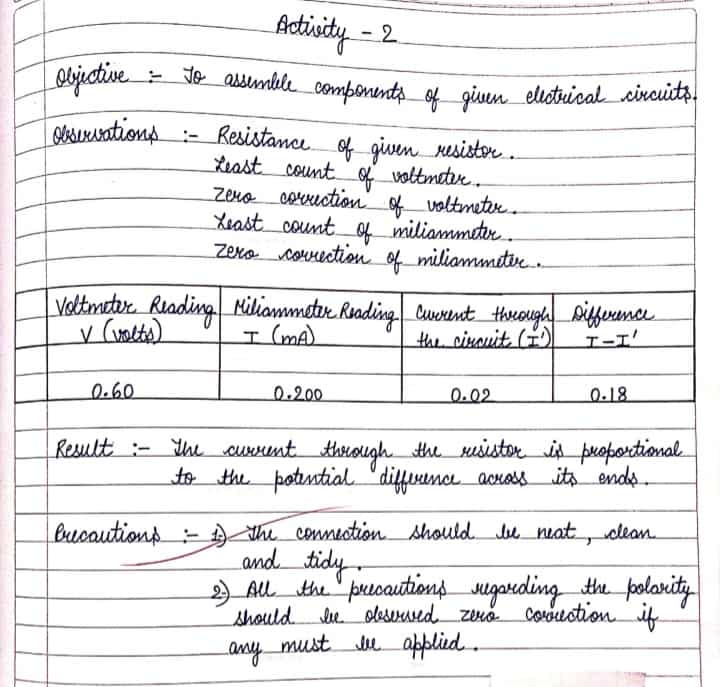 Activity - 2
Objective :- To assemble components of given electrical circuits.
Observations :- Resistance of given resistor.
Least count of voltmeter.
Zero correction of voltmeter.
Least count of miliammeter.
Zero correction of miliammeter.
Voltmeter Reading Miliammeter Reading Current through Difference
V (volts) I (mA) the circuit (I') I-I'
0.60 0.200 0.02 0.18
Result :- The current through the resistor is proportional
to the potential difference across its ends.
Precautions :- 1) The connection should be neat, clean
and tidy.
2) All the precautions regarding the polarity
should be observed zero correction if
any must be applied.